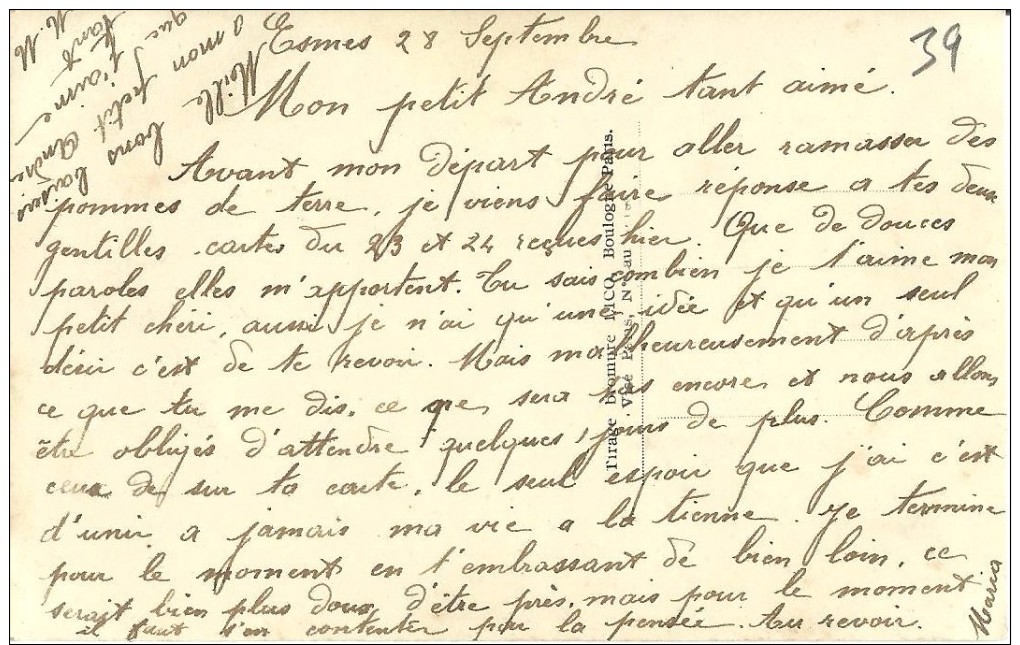 Esmes 28 Septembre
39
Mon petit André tant aimé.
Avant mon départ pour aller ramasser des
pommes de terre, je viens faire réponse a tes deux
gentilles cartes du 23 et 24 reçues hier. Que de douces
paroles elles m'apportent. Tu sais combien je t'aime mon
petit chéri, aussi je n'ai qu'une idée et qu'un seul
désir c'est de te revoir. Mais malheureusement d'après
ce que tu me dis, ce ne sera pas encore et nous allons
être obligés d'attendre quelques jours de plus. Comme
ceux de sur ta carte, le seul espoir que j'ai c'est
d'unir a jamais ma vie a la tienne. Je termine
pour le moment en t'embrassant de bien loin, ce
serait bien plus doux d'être près, mais pour le moment
il faut s'en contenter par la pensée. Au revoir.
Maria
Mille bons baisers
a mon petit André
que j'aime
tant
M. M
Tirage bromure LICO, Boulogne-Paris.
Visé Paris, N° au